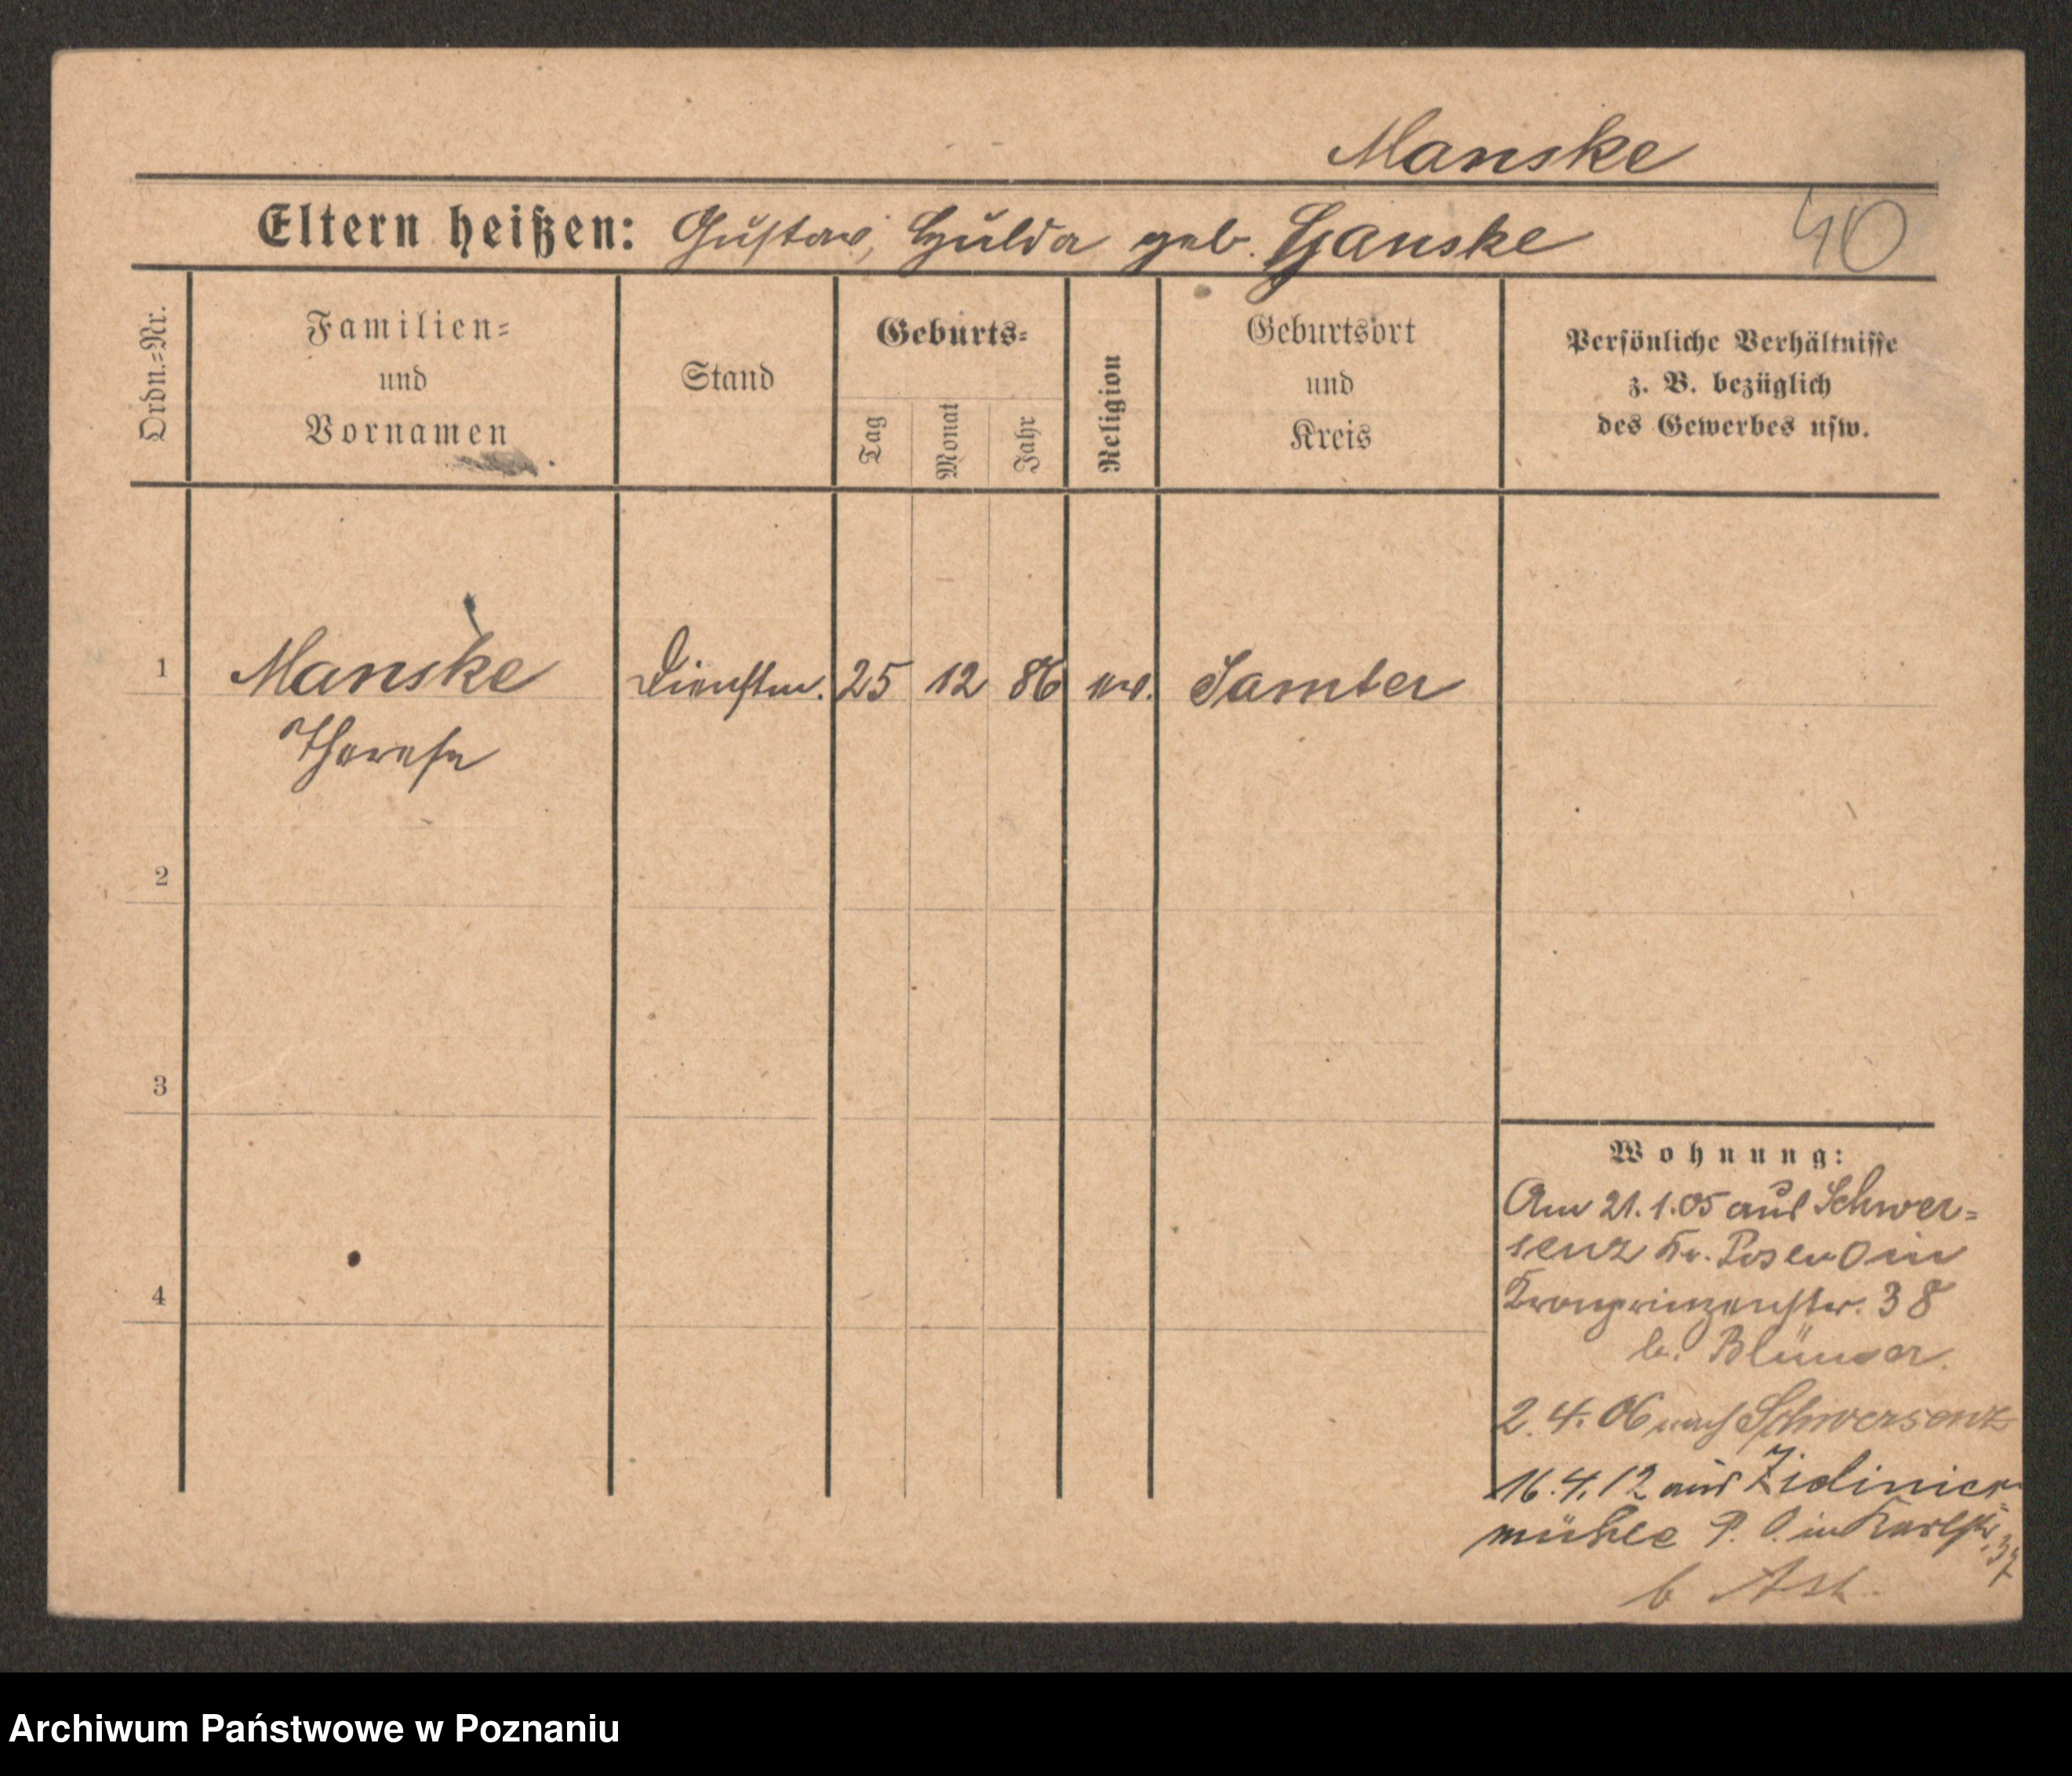 Manske
Eltern heißen: Gustav, Hulda geb. Hanske
40
Ordn.=Nr.
Familien=
und
Vornamen
Stand
Geburts=
Tag
Monat
Jahr
Religion
Geburtsort
und
Kreis
Persönliche Verhältnisse
z. B. bezüglich
des Gewerbes usw.
1 Manske Dienstm. 25 12 86 ev. Samter
Therese
2
3
4
Wohnung:
Am 21.1.05 aus Schwer=
senz Kr. Posen O in
Kronprinzenstr. 38
b.
2.4.06 nach Schwersenz
16.4.12 aus
mühle P. O. in Karlstr. 37
b
Archiwum Państwowe w Poznaniu